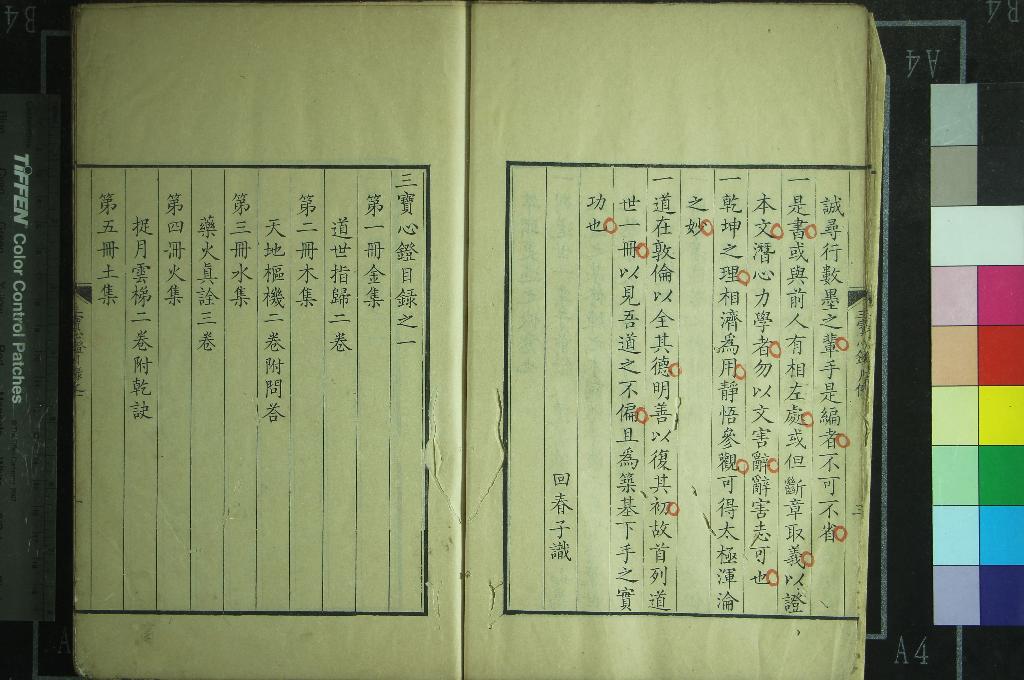 誠尋行數墨之輩手是編者不可不省
一是書或與前人有相左處或但斷章取義以證
本文潛心力學者勿以文害辭辭害志可也
一乾坤之理相濟為用靜悟參觀可得太極渾淪
之妙
一道在敦倫以全其德明善以復其初故首列道
世一冊以見吾道之不偏且為築基下手之實
功也
回春子識
三
三寶心鐙目錄之一
第一冊金集
道世指歸二卷
第二冊木集
天地樞機二卷附問答
第三冊水集
藥火眞詮三卷
第四冊火集
捉月雲梯二卷附乾訣
第五冊土集
TIFFEN Color Control Patches
A4
A4
B4
B4